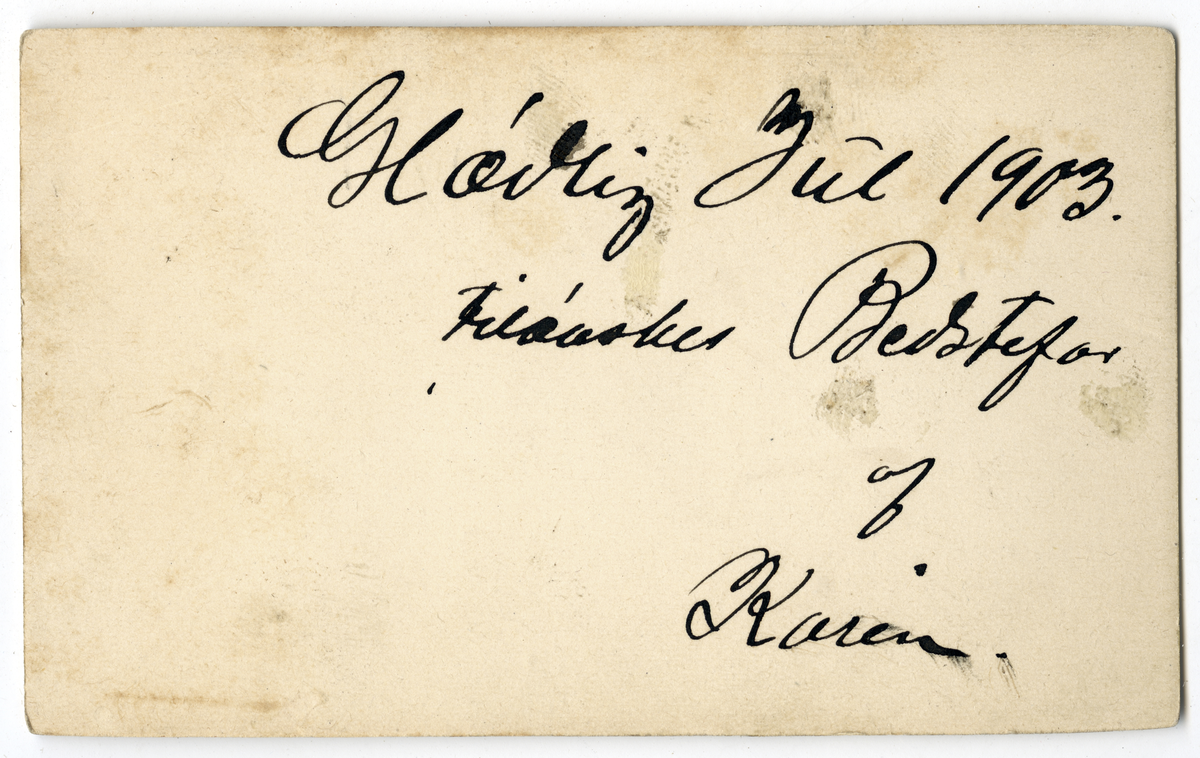 Glædlig Jul 1903.
tilønskes Bedstefar
af
Karen.